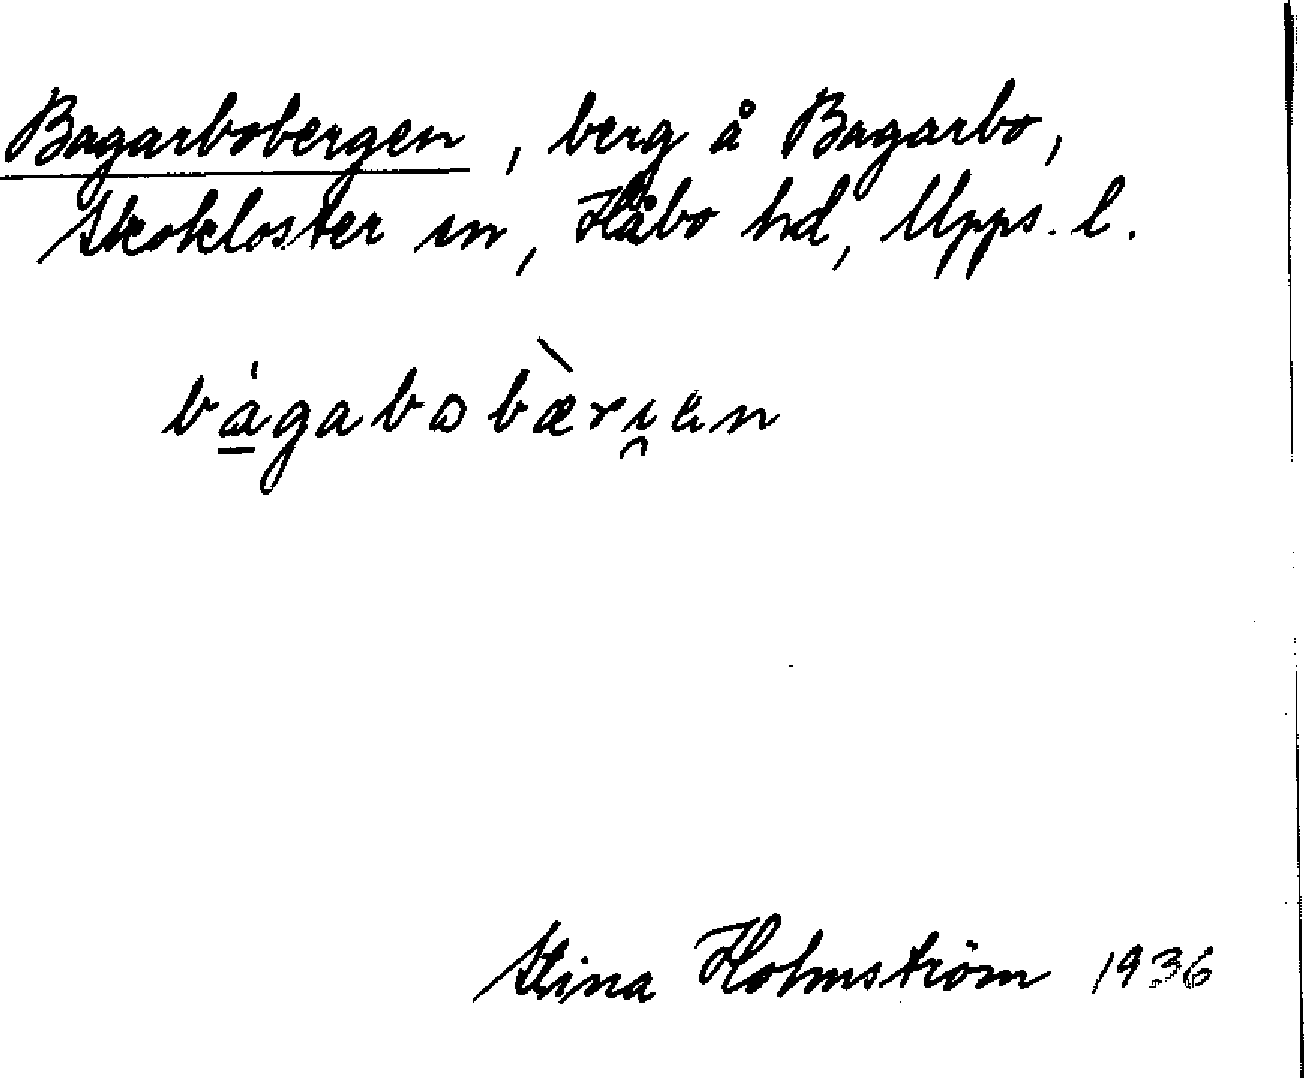 Bagarbobergen, berg å Bagarbo,
Skokloster sn, Håbo hd, Upps. l.
bàgabobæ̀ri̯ən
Stina Holmström 1936